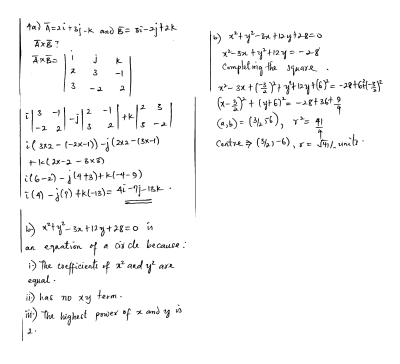 4a) A̅=2i+3j-k and B̅= 3i-2j+2k
A̅xB̅?
A̅xB̅= | i j k |
| 2 3 -1 |
| 3 -2 2 |
i | 3 -1 | -j | 2 -1 | +k | 2 3 |
| -2 2 | | 3 2 | | 3 -2 |
i( 3x2 - (-2x-1)) -j(2x2 - (3x-1)
+ k( 2x-2 - 3x3)
i(6-2) - j(4+3) +k(-4-9)
i(4) -j(7) +k(-13)= 4i-7j-13k.
b) x²+y²-3x+12y+28=0 is
an equation of a circle because:
i) The coefficients of x² and y² are
equal.
ii) has no xy term.
iii) The highest power of x and y is
2.
b) x²+y²-3x+12y+28=0
x²-3x+y²+12y = -28
Completing the square.
x²-3x+(-3/2)²+y²+12y+(6)² = -28+6²+(-3/2)²
(x-3/2)²+(y+6)² = -28+36+9/4
(a,b) = (3/2,-6), r²= 41/4
Centre ⇒ (3/2,-6), r = √41/2 units.